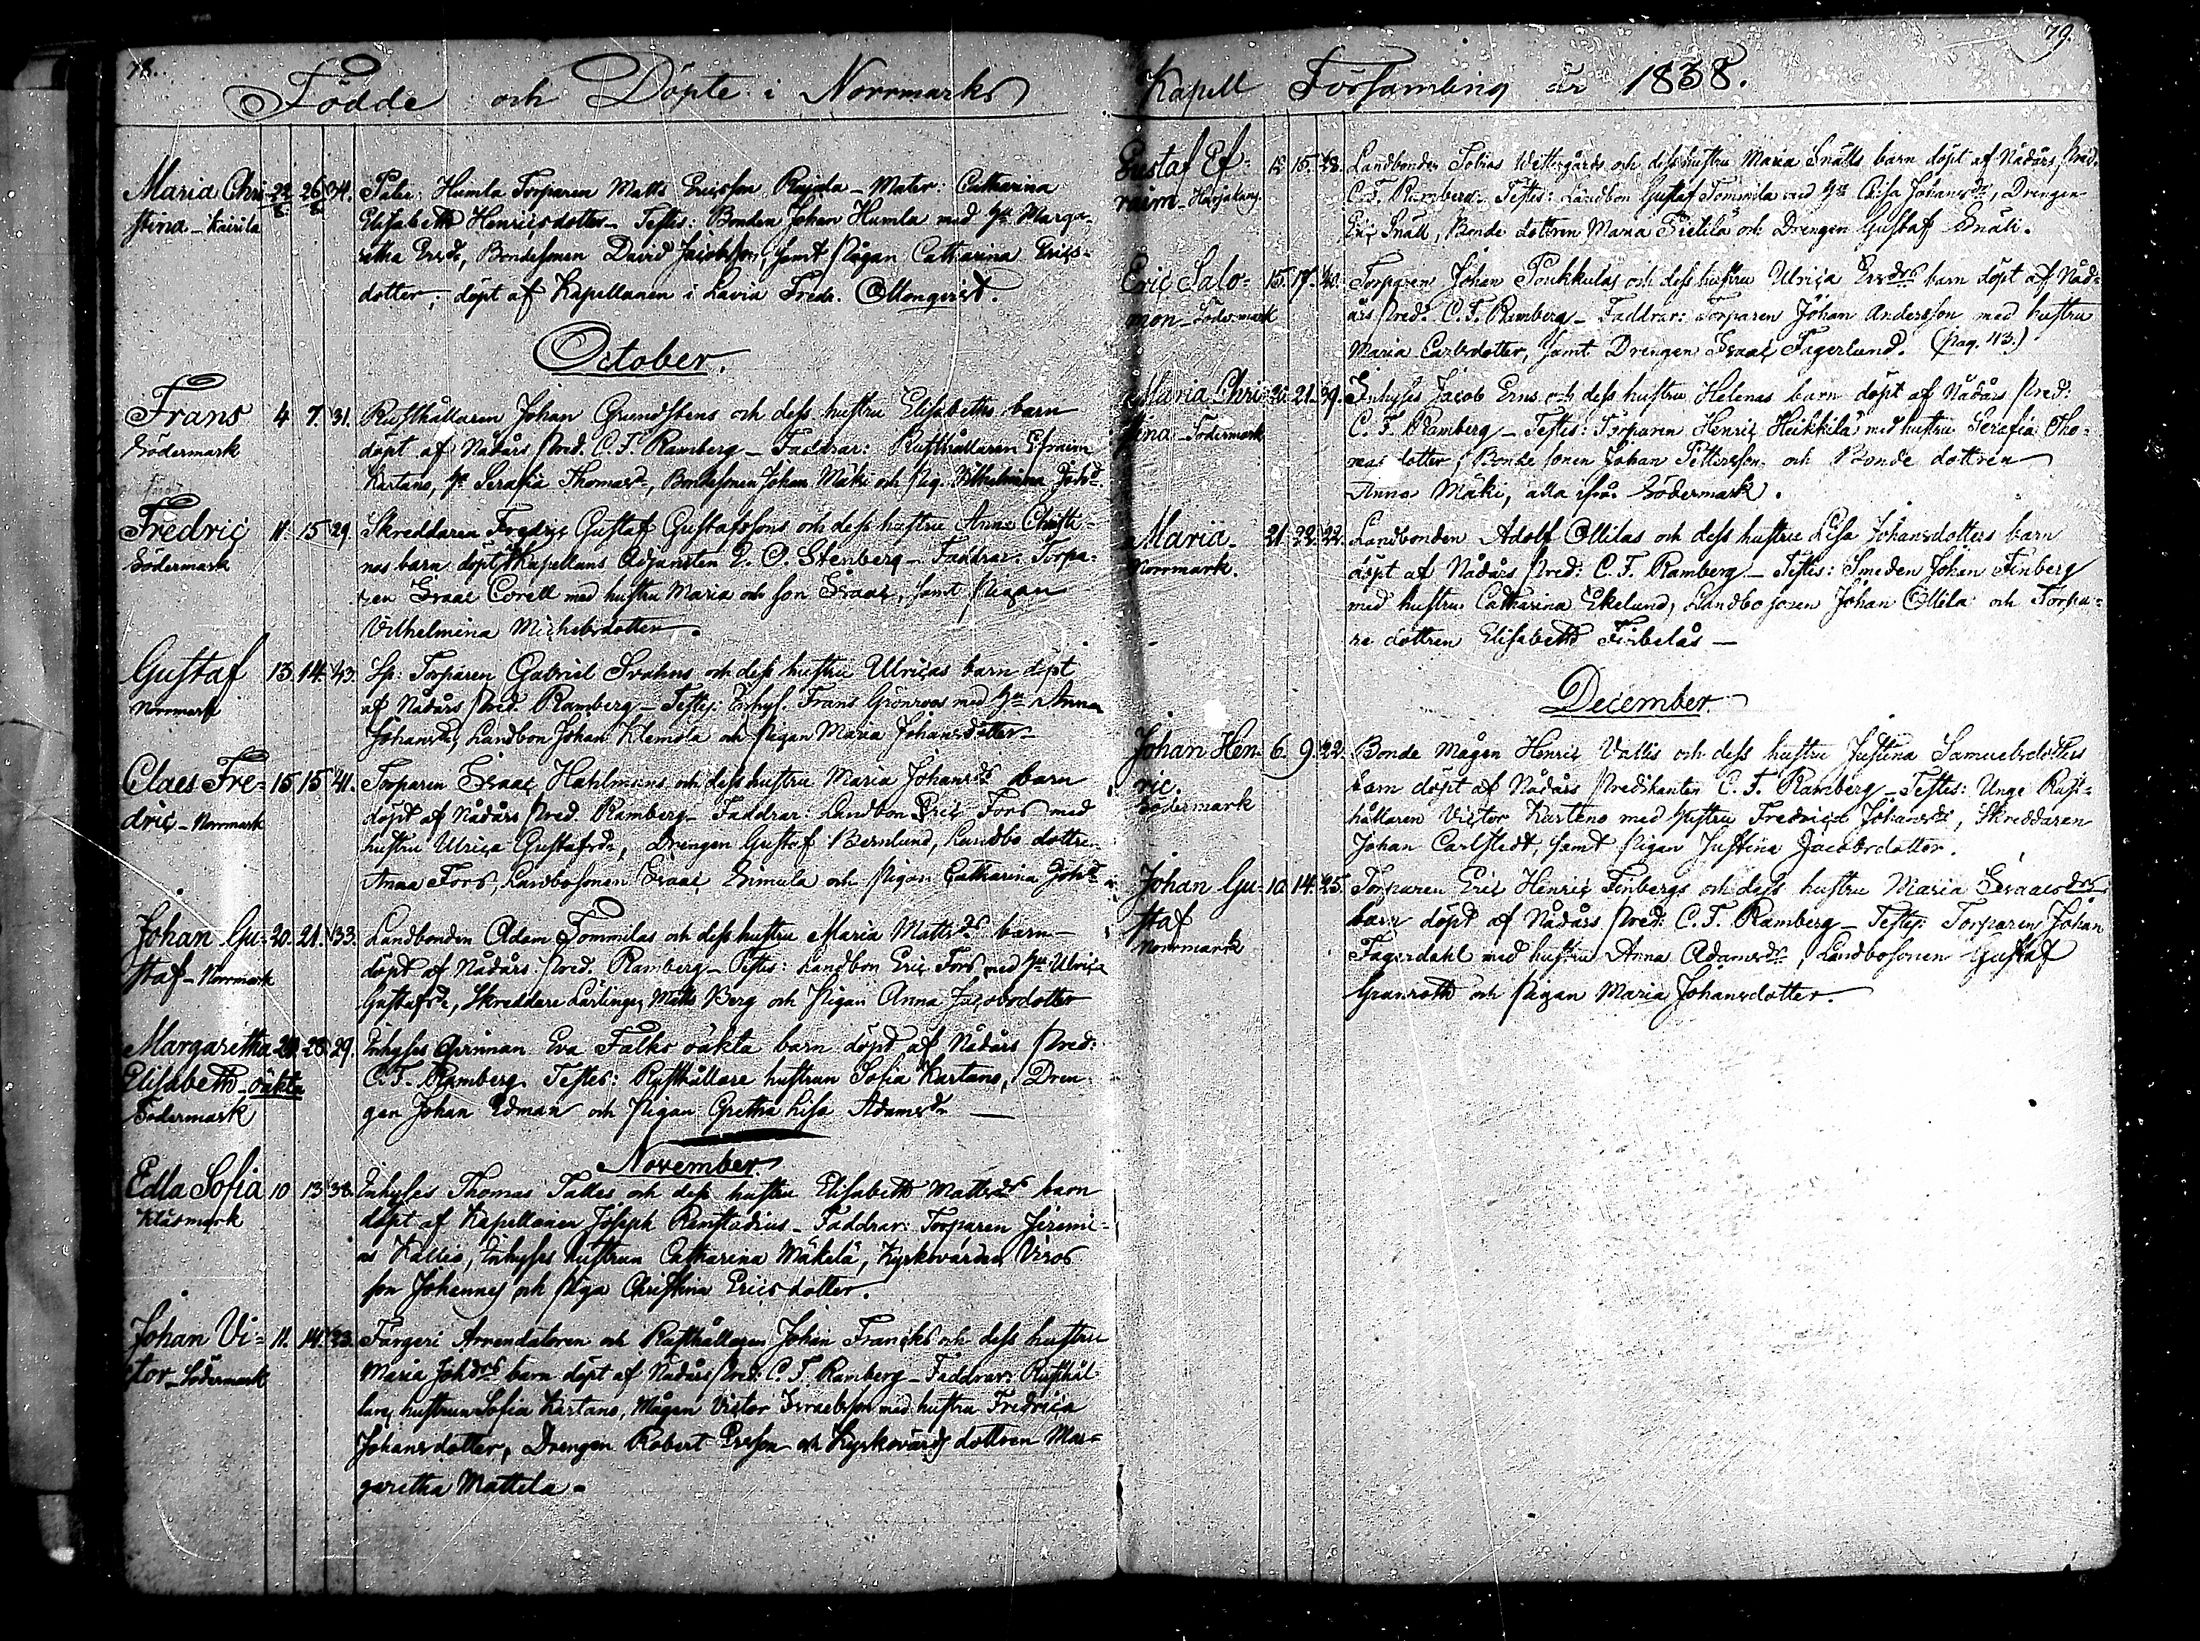 78.
Födde och Döpte i Norrmarks
Maria Chri- 22/8 26/8 34. Pater: Humla Torparen Matts Ericsson Rajala - Mater: Catharina
stina - Kairila Elisabeth Henricsdotter - Testes: Bonden Johan Humla med Hu Marga-
retha Ersdr, Bondesonen David Jacobsson, samt Pigan Catharina Erics-
dotter; döpt af Kapellanen i Lavia Fredr. Ollonqvist.
October.
Frans 4 7. 31. Rusthållaren Johan Grundstens och dess hustru Elisabeths barn
Södermark döpt af Nådårs Pred. C. F. Ramberg - Faddrar: Rusthållaren Efraim
Kartano, H. Serafia Thomasdr, Bondesonen Johan Mäki och Pig. Vilhelmina Johdr
Fredric 11. 15 29. Skreddaren Fredric Gustaf Gustafssons och dess hustru Anna Christi-
Södermark nas barn döpt af Kapellans Adjuncten Stenberg - Faddrar: Torpa-
ren Isaac Corell med hustru Maria och son Isaac, samt Pigan
Vilhelmina Michelsdotter.
Gustaf 13. 14. 43. Sp: Torparen Gabriel Svahns och dess hustru Ulricas barn döpt
Norrmark af Nådårs Pred. Ramberg - Testes: Inhys. Frans Grönroos med Hu Anna
Johansdr, Landbon Johan Klemola och Pigan Maria Johansdotter -
Claes Fre- 15 15 41. Torparen Isaac Hahlmans och dess hustru Maria Johansdrs barn
dric - Norrmark döpt af Nådårs Pred. Ramberg - Faddrar: Landbon Eric Fors med
hustru Ulrica Gustafsdr, Drengen Gustaf Bernlund, Landbo dottren
Anna Fors, Landbosonen Isaac Simula och Pigan Catharina Johdr
Johan Gu- 20. 21. 33. Landbonden Adam Tommilas och dess hustru Maria Mattsdrs barn -
staf - Norrmark döpt af Nådårs Pred. Ramberg - Testes: Landbon Eric Fors med Hu Ulrica
Gustafsdr, Skreddare Lärlingen Matts Berg och Pigan Anna Jacobsdotter
Margaretha 28. 29. Inhyses Qvinnan Eva Falks oäkta barn döpt af Nådårs Pred:
Elisabeth - oäkta C. F. Ramberg. Testes: Rusthållare hustrun Sofia Kartano, Dren-
Södermark gen Johan Edman och Pigan Gretha Lisa Adamsdr —
November.
Edla Sofia 10 13. 38. Inhyses Thomas Talles och dess hustru Elisabeth Mattsdrs barn
Klåsmark döpt af Kapellanen Joseph Ramstadius - Faddrar: Torparen Jeremi-
as Kallio, Inhyses hustrun Catharina Mäkelä, Kyrkovärden Viros
son Johannes och Piga Christina Ericsdotter.
Johan Vi- 11. 14. 33. Färgeri Arrendatoren och Rusthållaren Johan Francks och dess hustru
ctor - Södermark Maria Johdrs barn döpt af Nådårs Pred: C. F. Ramberg - Faddrar: Rusthål-
lare hustrun Sofia Kartano, Mågen Victor Israelsson med hustru Fredrica
Johansdotter, Drengen Robert Ersson och Kyrkovärds dottren Mar-
garetha Mattila -
79.
Kapell Församling år 1838.
Gustaf Ef- 12 15. 28. Landbonden Tobias Vestergårds och dess hustru Maria Snälls barn döpt af Nådårs Pred.
raim - Harjakang. C. F. Ramberg - Testes: Landbon Gustaf Tommila med Hu Lisa Johansdr, Drengen
Eric Snäll, Bonde dottren Maria Sietilä och Drengen Gustaf Snäll.
Eric Salo- 15. 17. 40. Torparen Johan Poukkulas och dess hustru Ulrica Ersdrs barn döpt af Nåd-
mon - Södermark års Pred. C. F. Ramberg - Faddrar: Torparen Johan Andersson med hustru
Maria Carlsdotter, samt Drengen Isaac Fagerlund. (pag. 113.)
Maria Chri- 20. 21. 39. Inhyses Jacob Erns och dess hustru Helenas barn döpt af Nådårs Pred:
stina - Södermark C. F. Ramberg - Testes: Torparen Henric Heikkilä med hustru Serafia Tho-
mas dotter, Bonde sonen Johan Pettersson och Bonde dottren
Anna Mäki, alla ifrån Södermark.
Maria - 21. 22. 22. Landbonden Adolf Ollilas och dess hustru Lisa Johansdotters barn
Norrmark. döpt af Nådårs Pred: C. F. Ramberg - Testes: Smeden Johan Finberg
med hustru Catharina Ekelund, Landbo sonen Johan Ollila och Torpa-
re dottren Elisabeth Finbelås —
December.
Johan Hen- 6. 9. 22. Bonde Mågen Henric Vallis och dess hustru Justina Samuelsdotters
ric. barn döpt af Nådårs Predikanten C. F. Ramberg - Testes: Unge Rust-
Södermark hållaren Victor Kartano med hustru Fredrica Johansdr, Skreddaren
Johan Carlstedt, samt Pigan Justina Jacobsdotter.
Johan Gu- 10. 14. 25. Torparen Eric Henric Finbergs och dess hustru Maria Isaacsdrs
staf barn döpt af Nådårs Pred: C. F. Ramberg - Testes: Torparen Johan
Norrmark Fagerdahl med hustru Anna Adamsdr, Landbosonen Gustaf
Granroth och Pigan Maria Johansdotter.